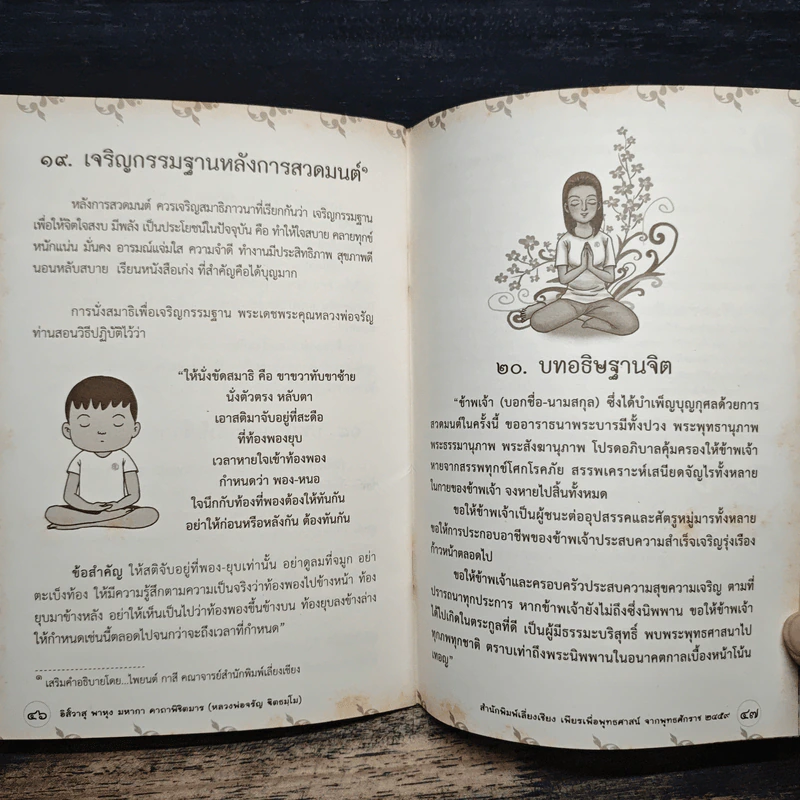 ๑๙. เจริญกรรมฐานหลังการสวดมนต์๑
หลังการสวดมนต์ ควรเจริญสมาธิภาวนาที่เรียกกันว่า เจริญกรรมฐาน
เพื่อให้จิตใจสงบ มีพลัง เป็นประโยชน์ในปัจจุบัน คือ ทำให้ใจสบาย คลายทุกข์
หนักแน่น มั่นคง อารมณ์แจ่มใส ความจำดี ทำงานมีประสิทธิภาพ สุขภาพดี
นอนหลับสบาย เรียนหนังสือเก่ง ที่สำคัญคือได้บุญมาก
การนั่งสมาธิเพื่อเจริญกรรมฐาน พระเดชพระคุณหลวงพ่อจรัญ
ท่านสอนวิธีปฏิบัติไว้ว่า
“ให้นั่งขัดสมาธิ คือ ขาขวาทับขาซ้าย
นั่งตัวตรง หลับตา
เอาสติมาจับอยู่ที่สะดือ
ที่ท้องพองยุบ
เวลาหายใจเข้าท้องพอง
กำหนดว่า พอง-หนอ
ใจนึกกับท้องที่พองต้องให้ทันกัน
อย่าให้ก่อนหรือหลังกัน ต้องทันกัน
ข้อสำคัญ ให้สติจับอยู่ที่พอง-ยุบเท่านั้น อย่าดูลมที่จมูก อย่า
ตะเบ็งท้อง ให้มีความรู้สึกตามความเป็นจริงว่าท้องพองไปข้างหน้า ท้อง
ยุบมาข้างหลัง อย่าให้เห็นเป็นไปว่าท้องพองขึ้นข้างบน ท้องยุบลงข้างล่าง
ให้กำหนดเช่นนี้ตลอดไปจนกว่าจะถึงเวลาที่กำหนด”
๑ เสริมคำอธิบายโดย...ไพยนต์ กาสี คณาจารย์สำนักพิมพ์เลี่ยงเชียง
๔๖ อิสิวาสุ พาหุง มหากา คาถาพิชิตมาร (หลวงพ่อจรัญ ฐิตธมฺโม)
๒๐. บทอธิษฐานจิต
“ข้าพเจ้า (บอกชื่อ-นามสกุล) ซึ่งได้บำเพ็ญบุญกุศลด้วยการ
สวดมนต์ในครั้งนี้ ขออาราธนาพระบารมีทั้งปวง พระพุทธานุภาพ
พระธรรมานุภาพ พระสังฆานุภาพ โปรดอภิบาลคุ้มครองให้ข้าพเจ้า
หายจากสรรพทุกข์โศกโรคภัย สรรพเคราะห์เสนียดจัญไรทั้งหลาย
ในกายของข้าพเจ้า จงหายไปสิ้นทั้งหมด
ขอให้ข้าพเจ้าเป็นผู้ชนะต่ออุปสรรคและศัตรูหมู่มารทั้งหลาย
ขอให้การประกอบอาชีพของข้าพเจ้าประสบความสำเร็จเจริญรุ่งเรือง
ก้าวหน้าตลอดไป
ขอให้ข้าพเจ้าและครอบครัวประสบความสุขความเจริญ ตามที่
ปรารถนาทุกประการ หากข้าพเจ้ายังไม่ถึงซึ่งนิพพาน ขอให้ข้าพเจ้า
ได้ไปเกิดในตระกูลที่ดี เป็นผู้มีธรรมะบริสุทธิ์ พบพระพุทธศาสนาไป
ทุกภพทุกชาติ ตราบเท่าถึงพระนิพพานในอนาคตกาลเบื้องหน้าโน้น
เทอญ”
สำนักพิมพ์เลี่ยงเชียง เพียรเพื่อพุทธศาสน์ จากพุทธศักราช ๒๔๕๙ ๔๗